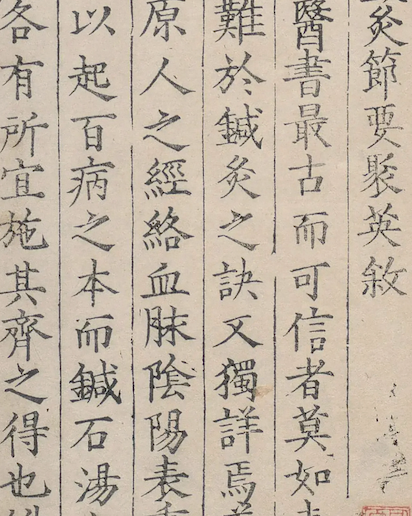 灸節要聚英敘
醫書最古而可信者莫如
難於鍼灸之訣又獨詳焉
原人之經絡血脉陰陽表
以起百病之本而鍼石湯
各有所宜施其齊之得也